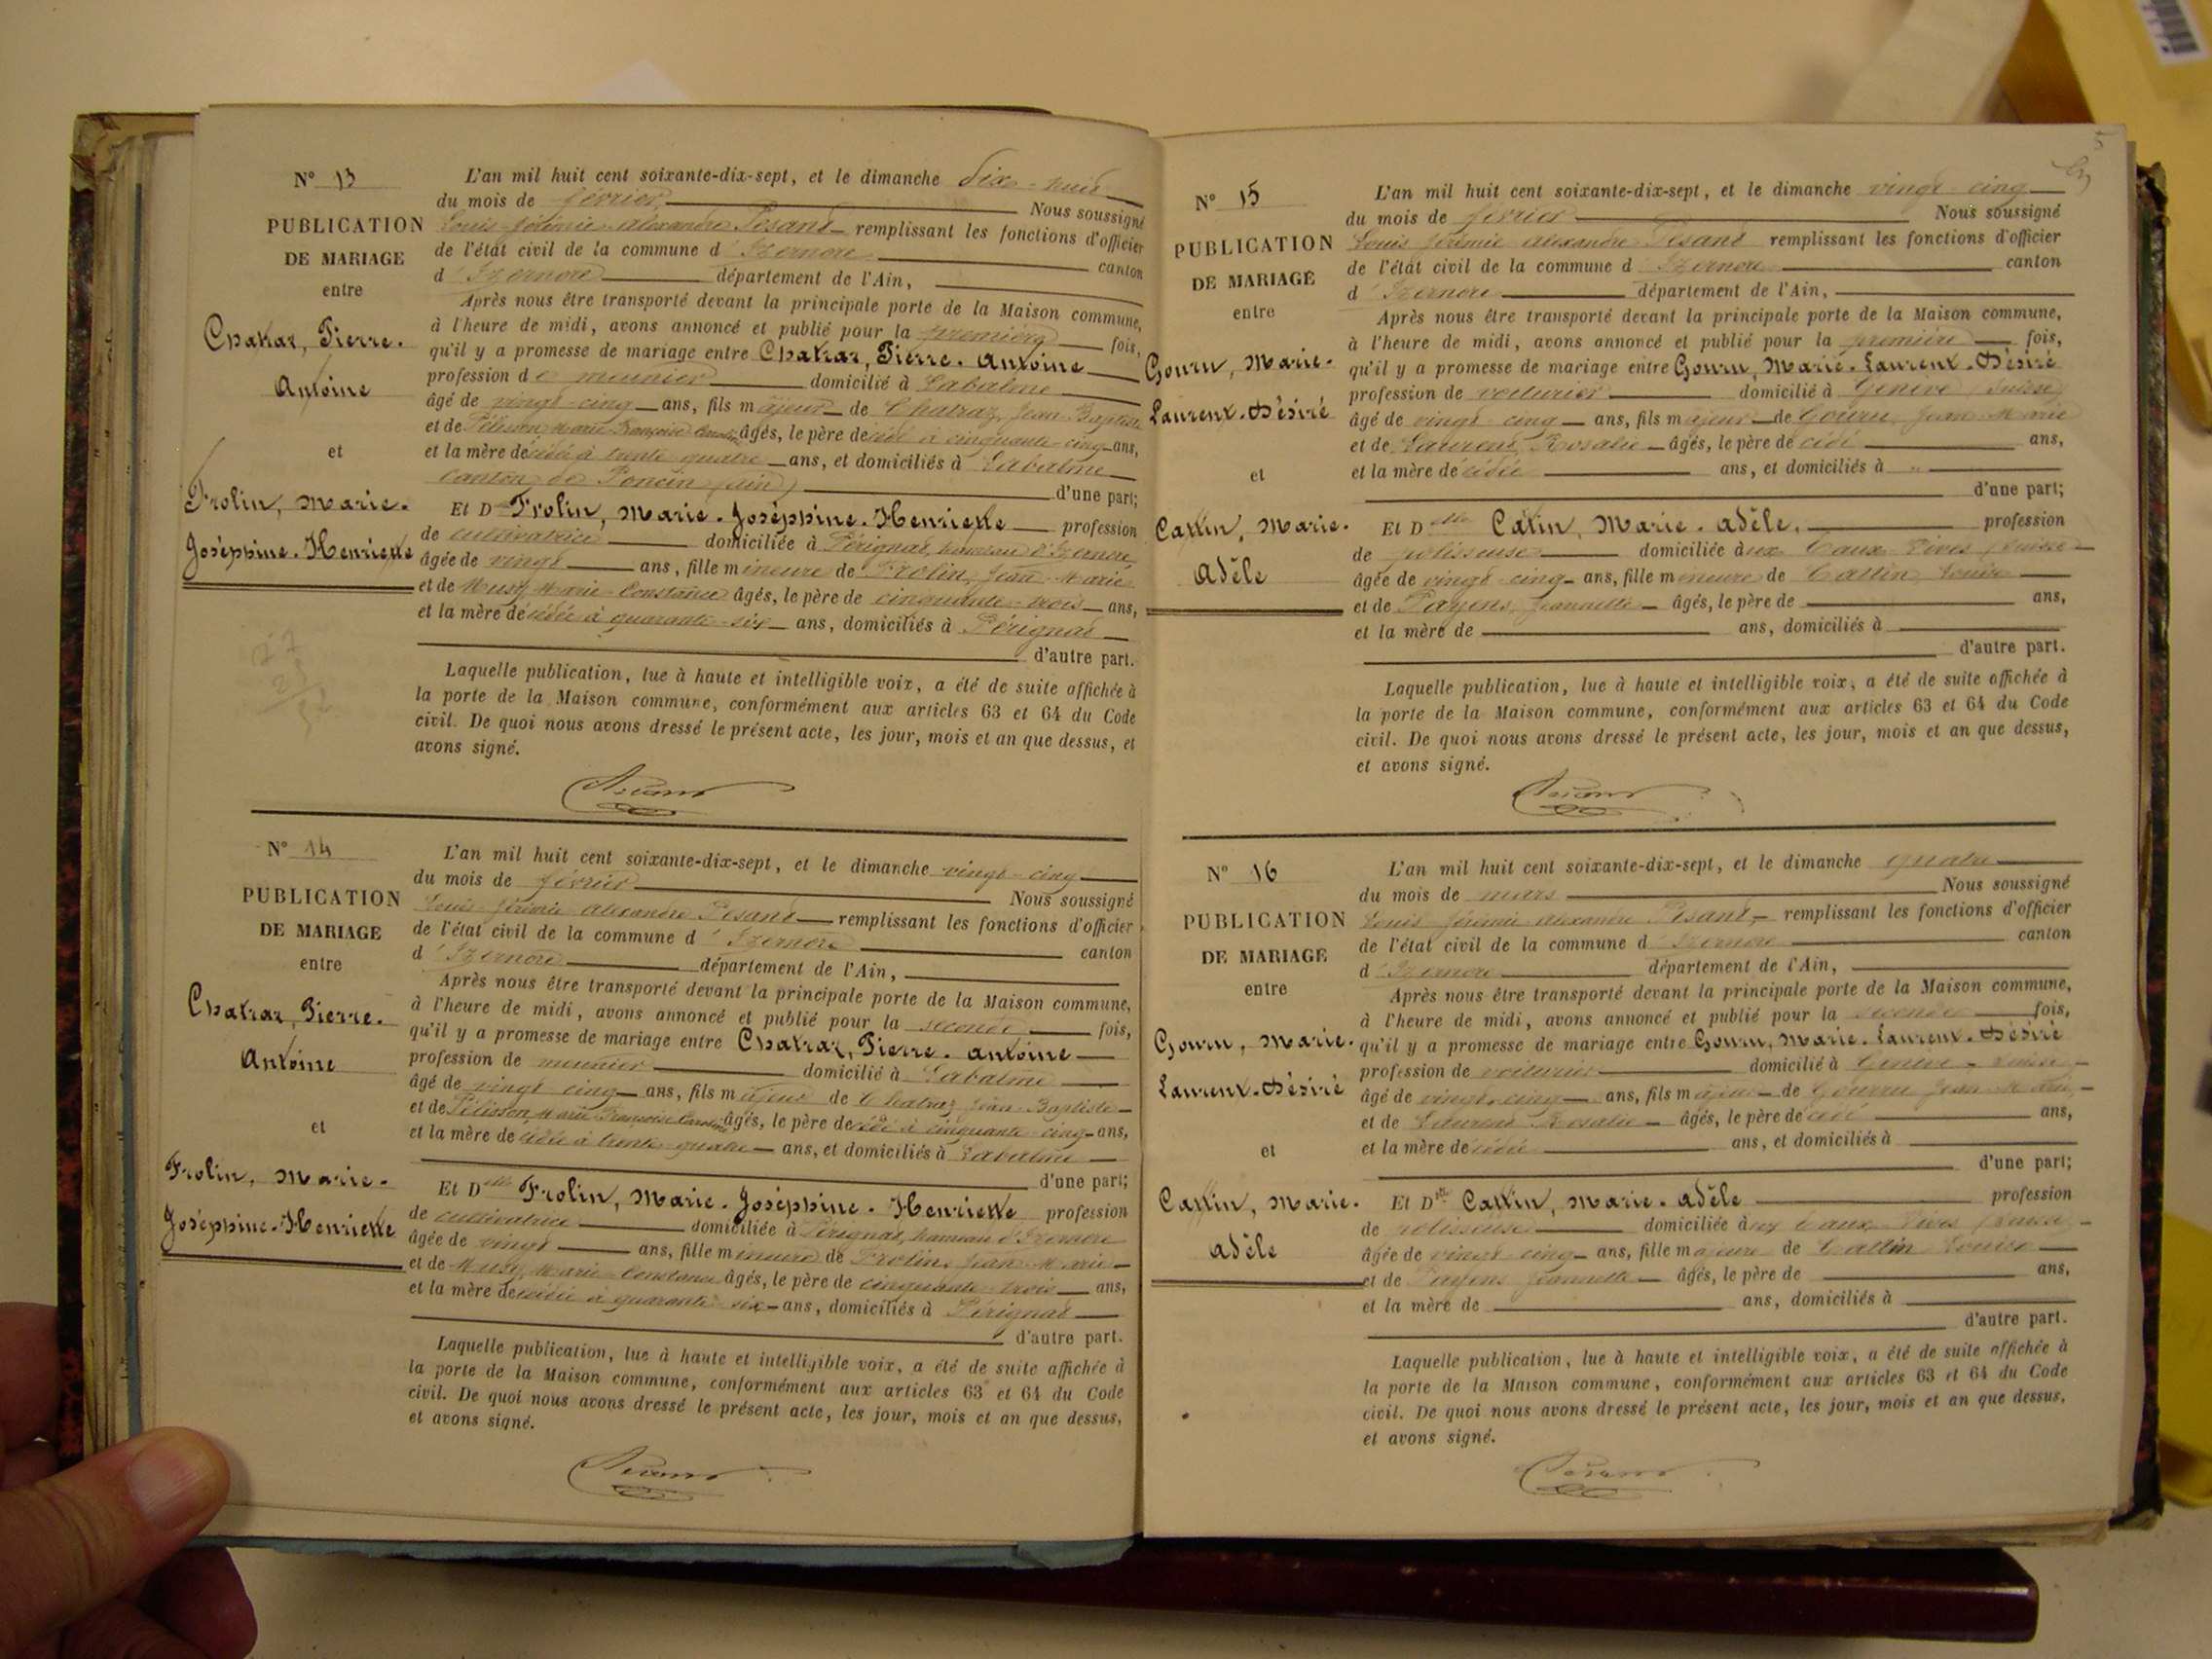 N° 13
PUBLICATION
DE MARIAGE
entre
Chatraz, Pierre.
Antoine
et
Frolin, Marie.
Joséphine. Henriette
L'an mil huit cent soixante-dix-sept, et le dimanche dix-huit
du mois de février Nous soussigné
Louis Jérémie Alexandre Pesant remplissant les fonctions d'officier
de l'état civil de la commune d'Izernore canton
d'Izernore département de l'Ain,
Après nous être transporté devant la principale porte de la Maison commune,
à l'heure de midi, avons annoncé et publié pour la première fois,
qu'il y a promesse de mariage entre Chatraz, Pierre. Antoine
profession de meunier domicilié à Labalme
âgé de vingt-cinq ans, fils majeur de Chatraz, Jean Baptiste
et de Pélisson Marie Françoise Caroline âgés, le père décédé à cinquante-cinq ans,
et la mère décédée à trente quatre ans, et domiciliés à Labalme
canton de Poncin (Ain) d'une part;
Et Dlle Frolin, Marie. Joséphine. Henriette profession
de cultivatrice domiciliée à Pérignat, hameau d'Izernore
âgée de vingt ans, fille mineure de Frolin, Jean Marie
et de Musy Marie Constance âgés, le père de cinquante-trois ans,
et la mère décédée à quarante-six ans, domiciliés à Pérignat
d'autre part.
Laquelle publication, lue à haute et intelligible voix, a été de suite affichée à
la porte de la Maison commune, conformément aux articles 63 et 64 du Code
civil. De quoi nous avons dressé le présent acte, les jour, mois et an que dessus, et
avons signé.
Pesant
N° 14
PUBLICATION
DE MARIAGE
entre
Chatraz, Pierre.
Antoine
et
Frolin, Marie.
Joséphine. Henriette
L'an mil huit cent soixante-dix-sept, et le dimanche vingt-cinq
du mois de février Nous soussigné
Louis Jérémie Alexandre Pesant remplissant les fonctions d'officier
de l'état civil de la commune d'Izernore canton
d'Izernore département de l'Ain,
Après nous être transporté devant la principale porte de la Maison commune,
à l'heure de midi, avons annoncé et publié pour la seconde fois,
qu'il y a promesse de mariage entre Chatraz, Pierre. Antoine
profession de meunier domicilié à Labalme
âgé de vingt cinq ans, fils majeur de Chatraz Jean Baptiste
et de Pélisson Marie Françoise Caroline âgés, le père décédé à cinquante-cinq ans,
et la mère décédée à trente quatre ans, et domiciliés à Labalme
d'une part;
Et Dlle Frolin, Marie. Joséphine. Henriette profession
de cultivatrice domiciliée à Pérignat, hameau d'Izernore
âgée de vingt ans, fille mineure de Frolin, Jean Marie
et de Musy, Marie Constance âgés, le père de cinquante trois ans,
et la mère décédée à quarante-six ans, domiciliés à Pérignat
d'autre part.
Laquelle publication, lue à haute et intelligible voix, a été de suite affichée à
la porte de la Maison commune, conformément aux articles 63 et 64 du Code
civil. De quoi nous avons dressé le présent acte, les jour, mois et an que dessus,
et avons signé.
Pesant
5
N° 15
PUBLICATION
DE MARIAGE
entre
Gourru, Marie.
Laurent. Désiré
et
Cattin, Marie.
Adèle
L'an mil huit cent soixante-dix-sept, et le dimanche vingt-cinq
du mois de février Nous soussigné
Louis Jérémie Alexandre Pesant remplissant les fonctions d'officier
de l'état civil de la commune d'Izernore canton
d'Izernore département de l'Ain,
Après nous être transporté devant la principale porte de la Maison commune,
à l'heure de midi, avons annoncé et publié pour la première fois,
qu'il y a promesse de mariage entre Gourru, Marie. Laurent. Désiré
profession de voiturier domicilié à Genève (Suisse)
âgé de vingt-cinq ans, fils majeur de Gourru, Jean Marie
et de Laurent, Rosalie âgés, le père décédé ans,
et la mère décédée ans, et domiciliés à "
d'une part;
Et Dlle Catin, Marie. Adèle, profession
de polisseuse domiciliée aux Eaux Vives (Suisse
âgée de vingt-cinq ans, fille mineure de Cattin Louise
et de Payens, Jeannette âgés, le père de ans,
et la mère de ans, domiciliés à
d'autre part.
Laquelle publication, lue à haute et intelligible voix, a été de suite affichée à
la porte de la Maison commune, conformément aux articles 63 et 64 du Code
civil. De quoi nous avons dressé le présent acte, les jour, mois et an que dessus,
et avons signé.
Pesant
N° 16
PUBLICATION
DE MARIAGE
entre
Gourru, Marie.
Laurent. Désiré
et
Cattin, Marie.
Adèle
L'an mil huit cent soixante-dix-sept, et le dimanche quatre
du mois de mars Nous soussigné
Louis Jérémie Alexandre Pesant, remplissant les fonctions d'officier
de l'état civil de la commune d'Izernore canton
d'Izernore département de l'Ain,
Après nous être transporté devant la principale porte de la Maison commune,
à l'heure de midi, avons annoncé et publié pour la seconde fois,
qu'il y a promesse de mariage entre Gourru, Marie. Laurent. Désiré
profession de voiturier domicilié à Genève - Suisse
âgé de vingt-cinq ans, fils majeur de Gourru Jean Marie,
et de Laurent Rosalie âgés, le père décédé ans,
et la mère décédée ans, et domiciliés à
d'une part;
Et Dlle Cattin, Marie. Adèle profession
de polisseuse domiciliée aux Eaux Vives (Suisse
âgée de vingt cinq ans, fille majeure de Cattin Louise
et de Payens Jeannette âgés, le père de ans,
et la mère de ans, domiciliés à
d'autre part.
Laquelle publication, lue à haute et intelligible voix, a été de suite affichée à
la porte de la Maison commune, conformément aux articles 63 et 64 du Code
civil. De quoi nous avons dressé le présent acte, les jour, mois et an que dessus,
et avons signé.
Pesant